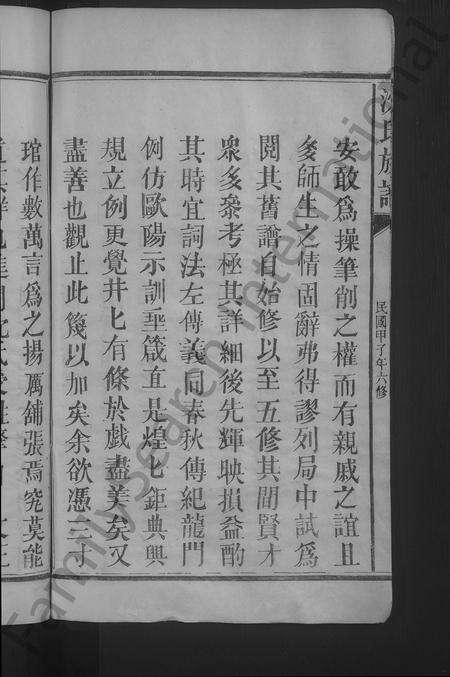 沈氏族譜
民國甲子年六修
安敢爲操筆削之權而有親戚之誼且
夋師生之情固辭弗得謬列局中試爲
閱其舊譜自始修以至五修其間賢才
衆多叅考極其詳細後先輝映損益酌
其時宜詞法左傳義同春秋傳紀龍門
例仿歐陽示訓垂箴直是煌匕鉅典與
規立例更覺井匕有條於戲盡美矣又
盡善也觀止此篾以加矣余欲憑三寸
琯作數萬言爲之揚厲舖張焉究莫能
FamilySearch International